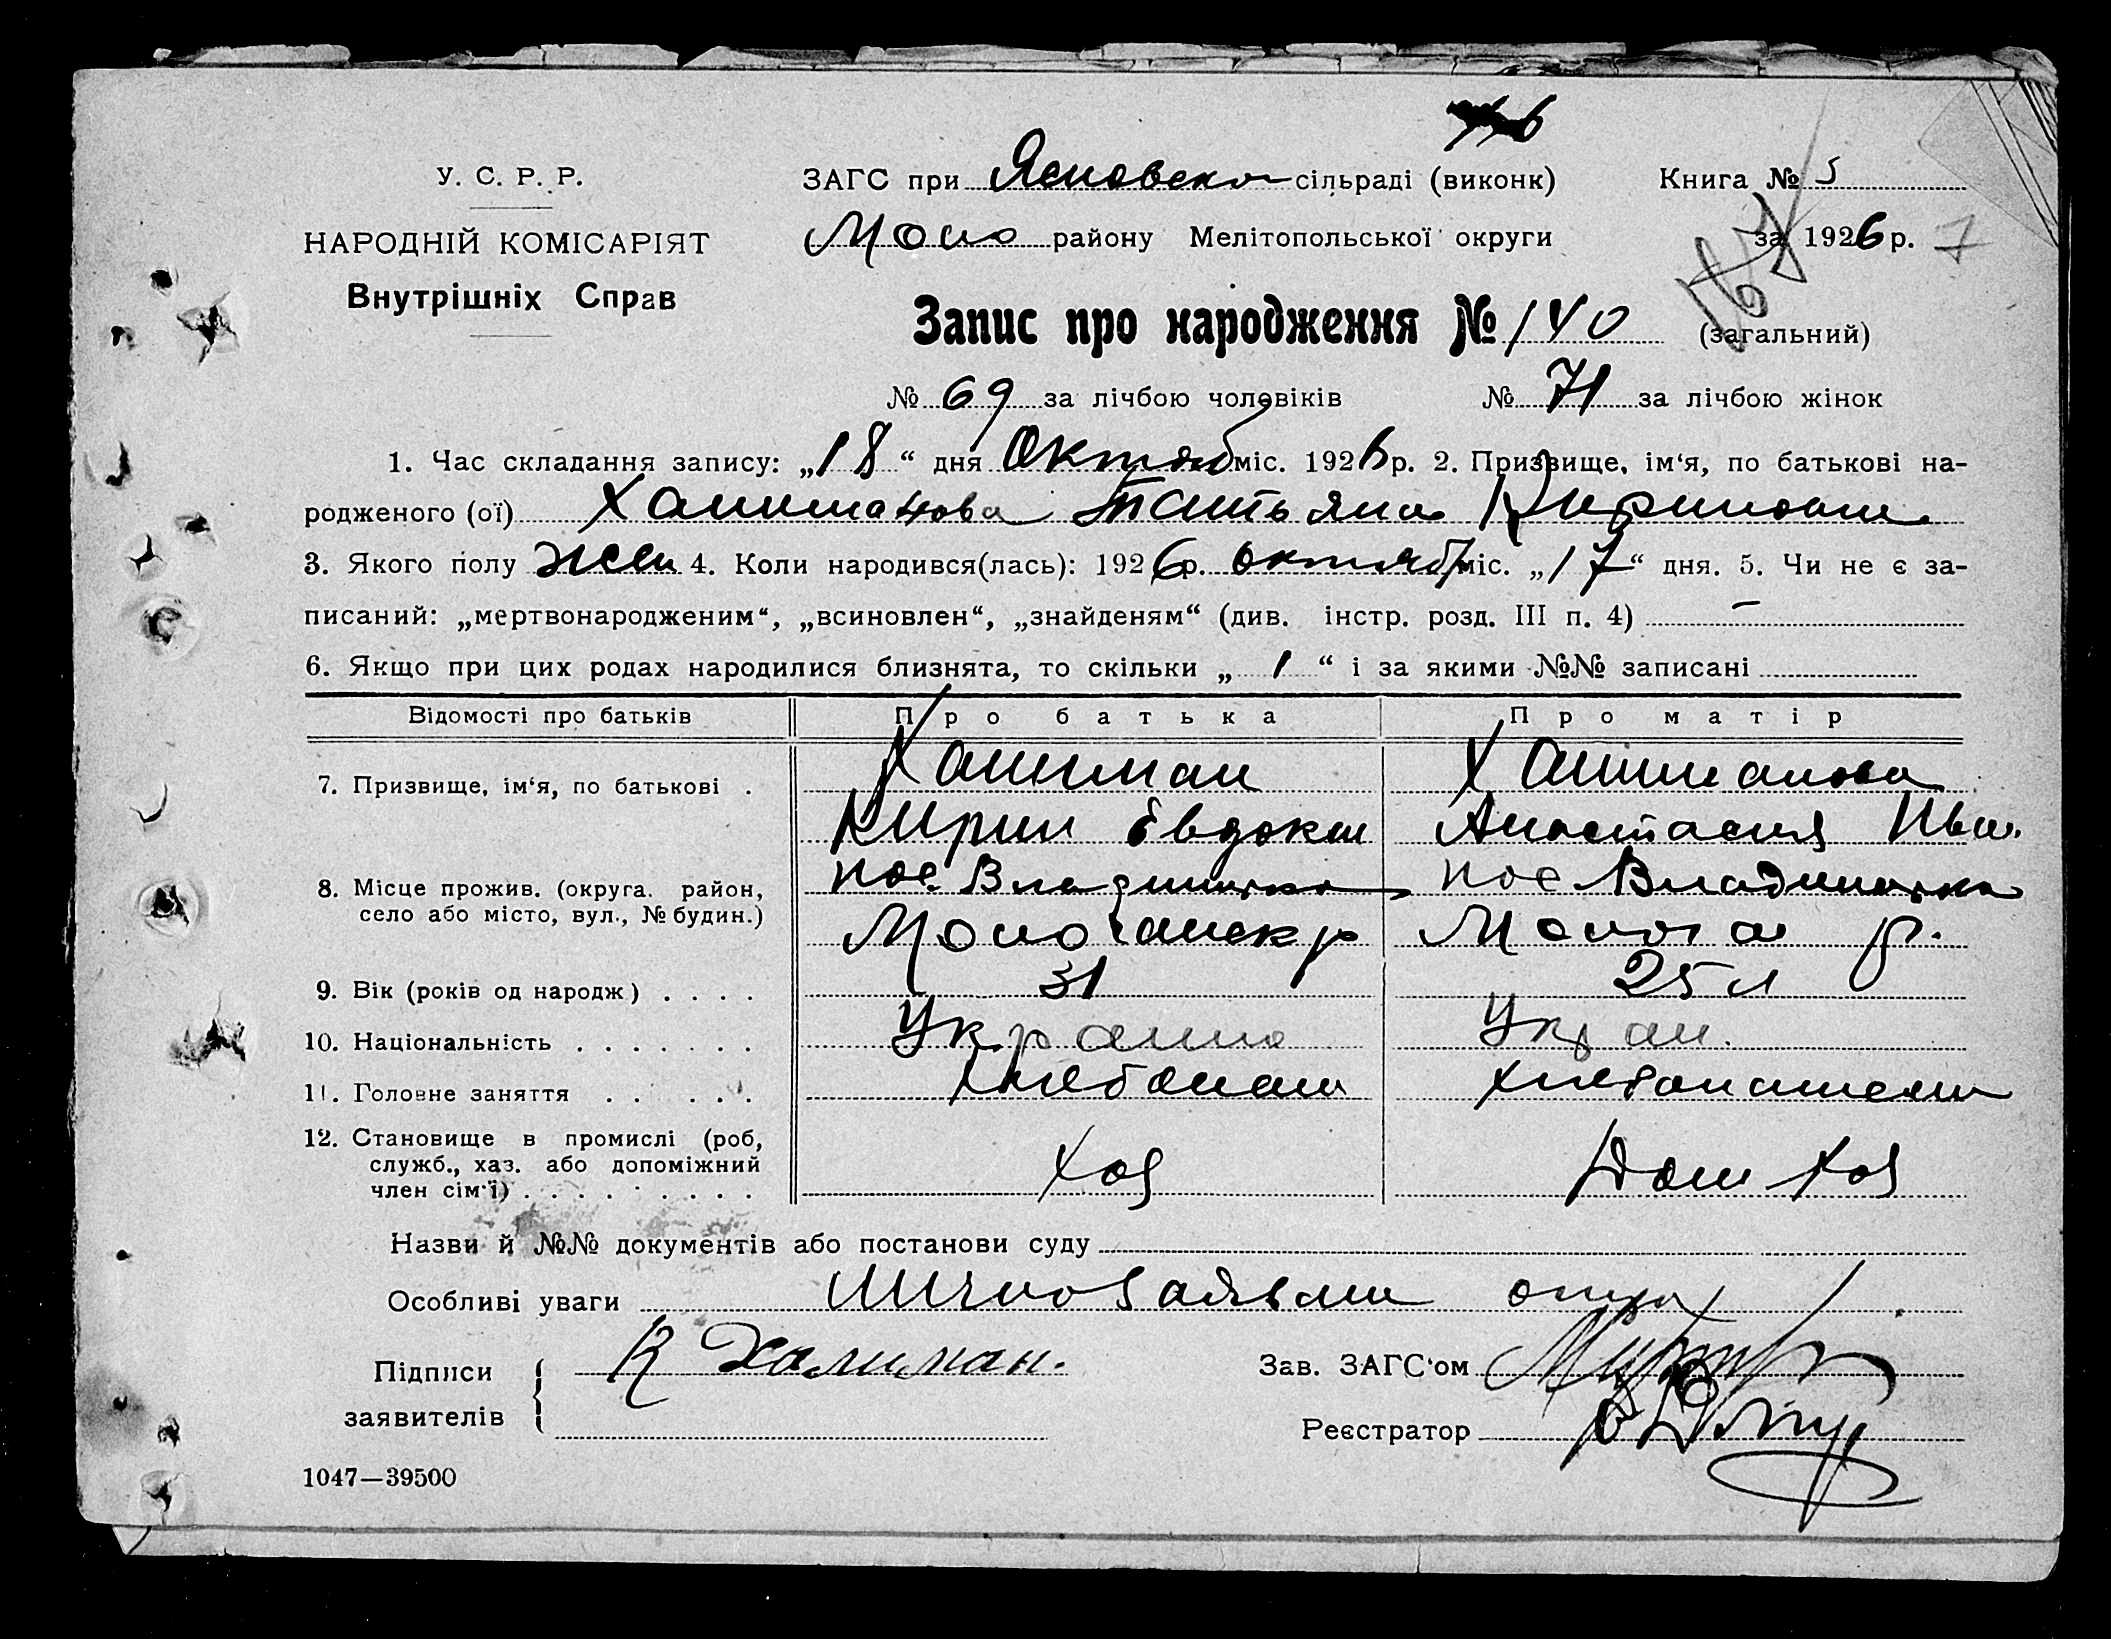 У. С. Р. Р.
НАРОДНІЙ КОМІСАРІЯТ
Внутрішніх Справ
ЗАГС при Ясновско сільраді (виконк)
Моло району Мелітопольської округи
Книга № 5
за 1926 р. 7
Запис про народження № 140 (загальний)
№ 69 за лічбою чоловіків № 71 за лічбою жінок
1. Час складання запису: „18“ дня Октяб міс. 1926 р. 2. Призвище, ім‘я, по батькові на-
родженого (ої) Халиманова Татьяна
3. Якого полу жен 4. Коли народився(лась): 1926 р. октяб міс. „17“ дня. 5. Чи не є за-
писаний: „мертвонародженим“, „всиновлен“, „знайденям“ (див. інстр. розд. III п. 4) —
6. Якщо при цих родах народилися близнята, то скільки „1“ і за якими №№ записані
Відомості про батьків Про батька Про матір
7. Призвище, ім‘я, по батькові . Халиман Халиманова
Кирил Евдоким Анастасия Иван.
8. Місце прожив. (округа. район, пос Владимировка пос Владимировка
село або місто, вул., № будин.) Молочанск р Молоч р.
9. Вік (років од народж) . . . . 31 25 л
10. Національність . . . . . . . Украине Украин.
11. Головне заняття . . . . . . Хлебопаш хлебопашест
12. Становище в промислі (роб,
служб., хаз. або допоміжний
член сім‘ї) . . . . . . . . . . Хоз Дом Хоз
Назви й №№ документів або постанови суду
Особливі уваги Лично заявлен отцом
Підписи заявителів К Халиман.
Зав. ЗАГС‘ом
Реєстратор
1047—39500